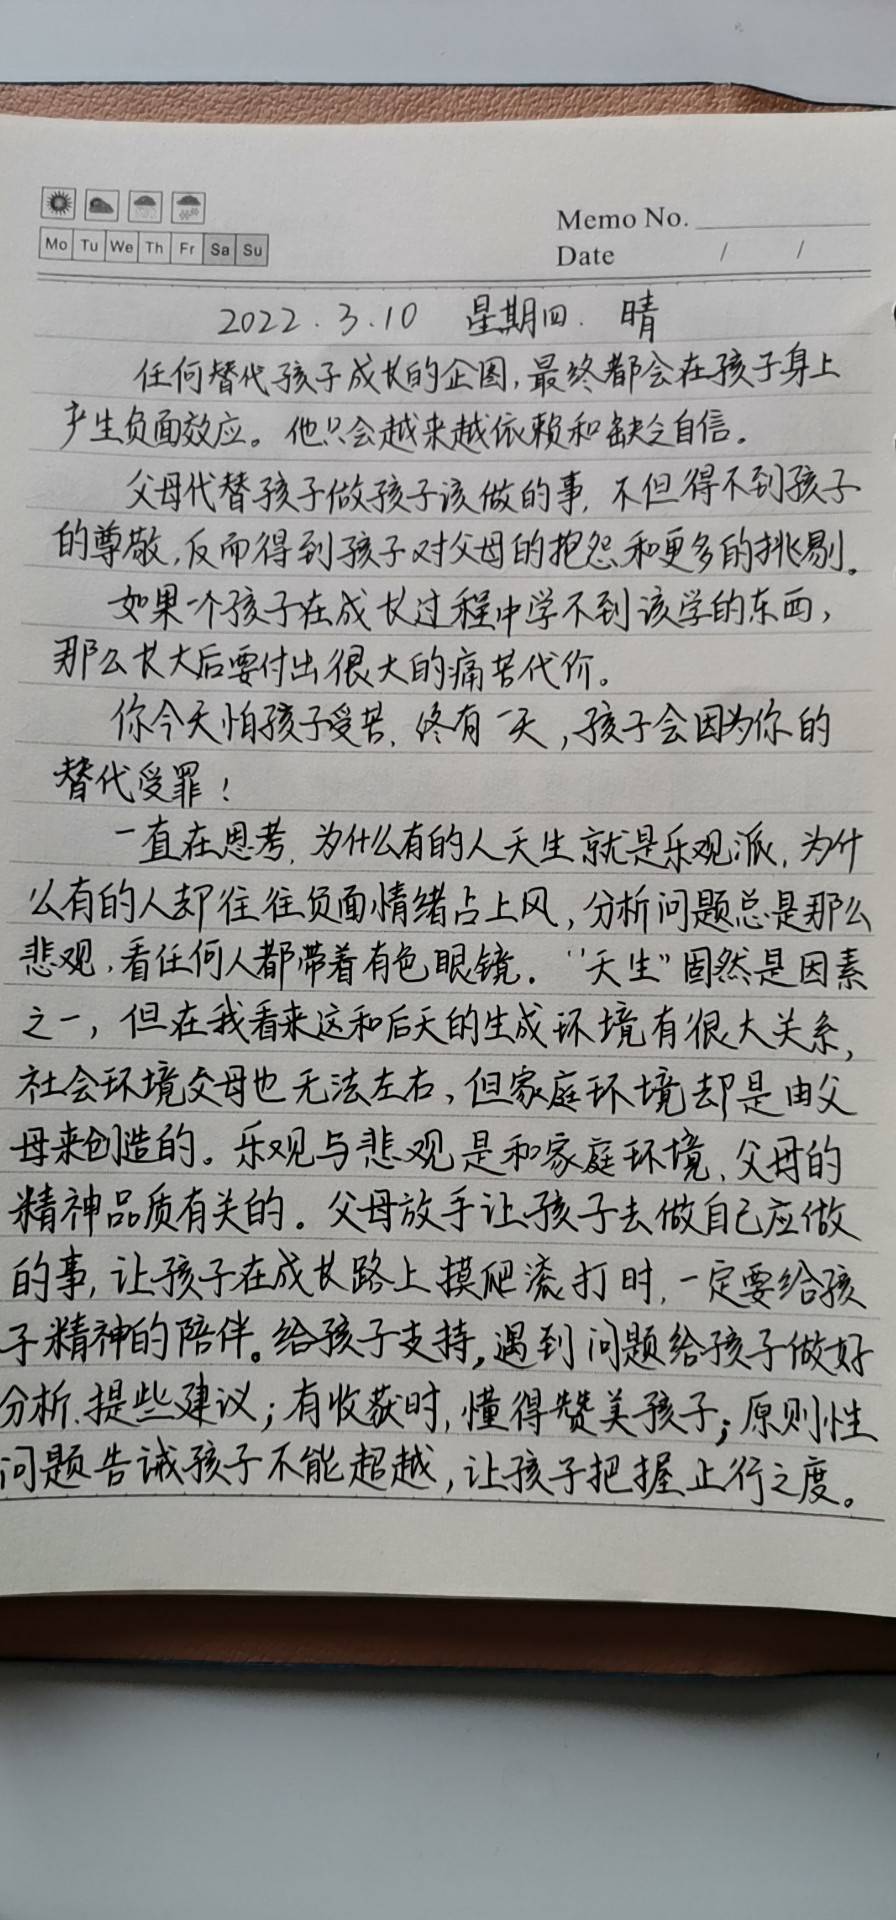 Mo Tu We Th Fr Sa Su
Memo No.
Date / /
2022.3.10 星期四. 晴
任何替代孩子成长的企图,最终都会在孩子身上
产生负面效应。他只会越来越依赖和缺乏自信。
父母代替孩子做孩子该做的事,不但得不到孩子
的尊敬,反而得到孩子对父母的抱怨和更多的挑剔。
如果一个孩子在成长过程中学不到该学的东西,
那么长大后要付出很大的痛苦代价。
你今天怕孩子受苦,终有一天,孩子会因为你的
替代受罪!
一直在思考,为什么有的人天生就是乐观派,为什
么有的人却往往负面情绪占上风,分析问题总是那么
悲观,看任何人都带着有色眼镜.“天生”固然是因素
之一,但在我看来这和后天的生成环境有很大关系,
社会环境父母也无法左右,但家庭环境却是由父
母来创造的。乐观与悲观是和家庭环境、父母的
精神品质有关的。父母放手让孩子去做自己应做
的事,让孩子在成长路上摸爬滚打时,一定要给孩
子精神的陪伴。给孩子支持,遇到问题给孩子做好
分析、提些建议;有收获时,懂得赞美孩子;原则性
问题告诫孩子不能超越,让孩子把握止行之度。